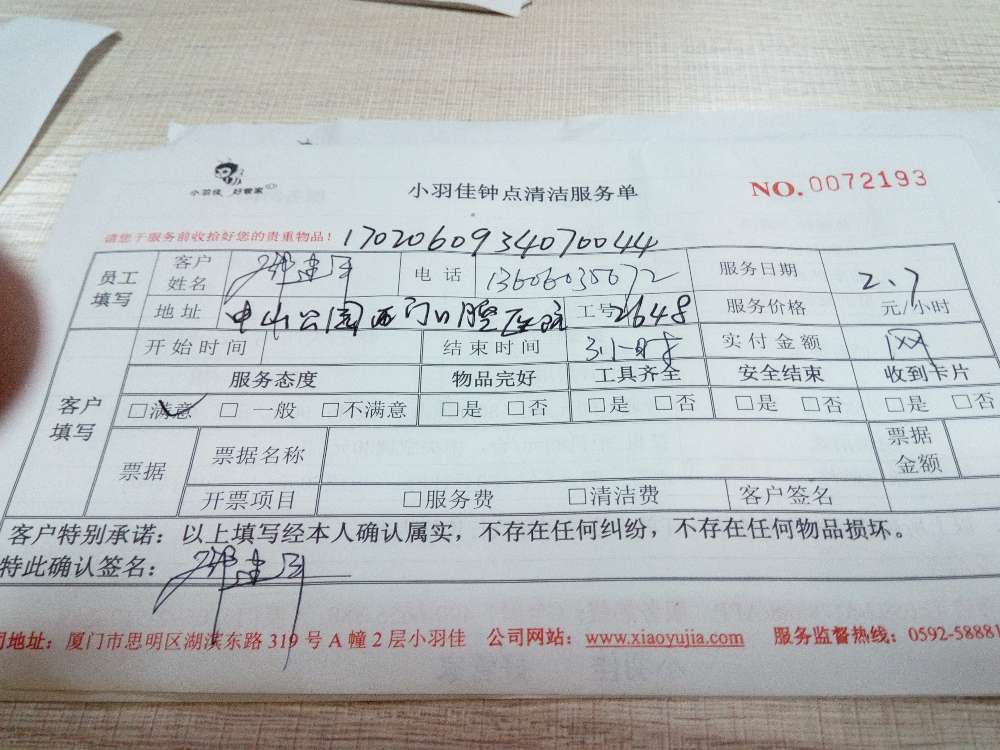 小羽佳 好管家
小羽佳钟点清洁服务单
NO.0072193
请您于服务前收拾好您的贵重物品！ 1702060934070044
员工填写 客户姓名 电话 13606030672 服务日期 2.7
地址 中山公园西门口腔医院 工号 2648 服务价格 元/小时
客户填写 开始时间 结束时间 3小时 实付金额 网
服务态度 物品完好 工具齐全 安全结束 收到卡片
□满意 □一般 □不满意 □是 □否 □是 □否 □是 □否 □是 □否
票据 票据名称 票据金额
开票项目 □服务费 □清洁费 客户签名
客户特别承诺：以上填写经本人确认属实，不存在任何纠纷，不存在任何物品损坏。
特此确认签名：
司地址：厦门市思明区湖滨东路319号A幢2层小羽佳 公司网站：www.xiaoyujia.com 服务监督热线：0592-58881